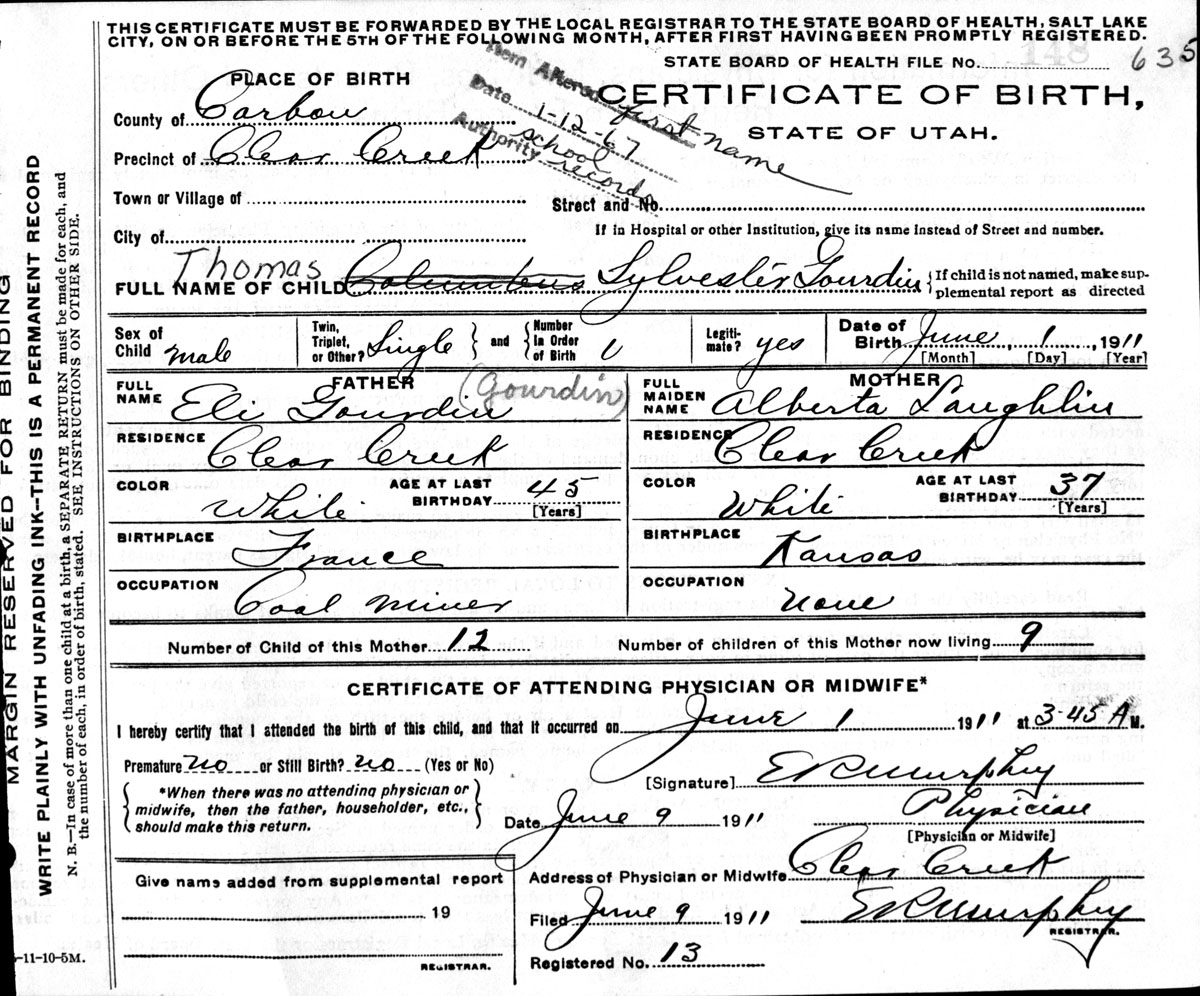 THIS CERTIFICATE MUST BE FORWARDED BY THE LOCAL REGISTRAR TO THE STATE BOARD OF HEALTH, SALT LAKE
CITY, ON OR BEFORE THE 5TH OF THE FOLLOWING MONTH, AFTER FIRST HAVING BEEN PROMPTLY REGISTERED.
STATE BOARD OF HEALTH FILE No. 148 635
PLACE OF BIRTH
Item Altered first name
Date 1-12-67
Authority school record
CERTIFICATE OF BIRTH,
STATE OF UTAH.
County of Carbon
Precinct of Clear Creek
Town or Village of
Street and No.
City of
If in Hospital or other Institution, give its name instead of Street and number.
Thomas
FULL NAME OF CHILD Columbus Sylvester Gourdin
{If child is not named, make sup-
plemental report as directed
Sex of Child male
Twin, Triplet, or Other? Single } and { Number In Order of Birth 1
Legiti-mate? yes
Date of Birth June 1 1911
[Month] [Day] [Year]
FATHER
FULL NAME Eli Gourdin (Gourdin)
MOTHER
FULL MAIDEN NAME Alberta Laughlin
RESIDENCE Clear Creek
RESIDENCE Clear Creek
COLOR White AGE AT LAST BIRTHDAY 45 [Years]
COLOR White AGE AT LAST BIRTHDAY 37 [Years]
BIRTHPLACE France
BIRTHPLACE Kansas
OCCUPATION Coal Miner
OCCUPATION None
Number of Child of this Mother 12
Number of children of this Mother now living 9
CERTIFICATE OF ATTENDING PHYSICIAN OR MIDWIFE*
I hereby certify that I attended the birth of this child, and that it occurred on June 1 1911 at 3-45 A M.
Premature no or Still Birth? no (Yes or No)
[Signature] E R Murphey
*When there was no attending physician or
midwife, then the father, householder, etc.,
should make this return.
Date June 9 1911
Physician
[Physician or Midwife]
Give name added from supplemental report
19
REGISTRAR.
Address of Physician or Midwife Clear Creek
Filed June 9 1911 E R Murphey
REGISTRAR.
Registered No. 13
-11-10-5M.
MARGIN RESERVED FOR BINDING
WRITE PLAINLY WITH UNFADING INK—THIS IS A PERMANENT RECORD
N. B.—In case of more than one child at a birth, a SEPARATE RETURN must be made for each, and
the number of each, in order of birth, stated. SEE INSTRUCTIONS ON OTHER SIDE.